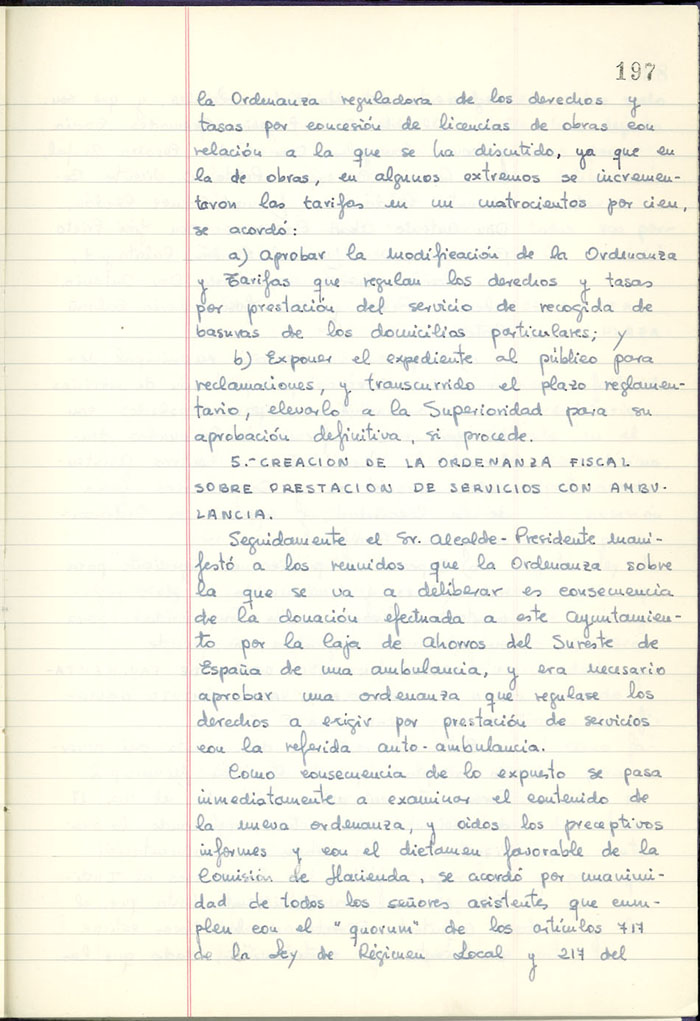 197
la Ordenanza reguladora de los derechos y
tasas por concesión de licencias de obras con
relación a la que se ha discutido, ya que en
la de obras, en algunos extremos se incremen-
taron las tarifas en un cuatrocientos por cien,
se acordó:
a) Aprobar la modificación de la Ordenanza
y Tarifas que regulan los derechos y tasas
por prestación del servicio de recogida de
basuras de los domicilios particulares; y
b) Exponer el expediente al público para
reclamaciones, y transcurrido el plazo reglamen-
tario, elevarlo a la Superioridad para su
aprobación definitiva, si procede.
5.- CREACION DE LA ORDENANZA FISCAL
SOBRE PRESTACION DE SERVICIOS CON AMBU-
LANCIA.
Seguidamente el Sr. Alcalde-Presidente mani-
festó a los reunidos que la Ordenanza sobre
la que se va a deliberar es consecuencia
de la donación efectuada a este Ayuntamien-
to por la Caja de Ahorros del Sureste de
España de una ambulancia, y era necesario
aprobar una ordenanza que regulase los
derechos a exigir por prestación de servicios
con la referida auto-ambulancia.
Como consecuencia de lo expuesto se pasa
inmediatamente a examinar el contenido de
la nueva ordenanza, y oidos los preceptivos
informes y con el dictamen favorable de la
Comisión de Hacienda, se acordó por unanimi-
dad de todos los señores asistentes que cum-
plen con el "quorum" de los artículos 717
de la Ley de Régimen Local y 217 del